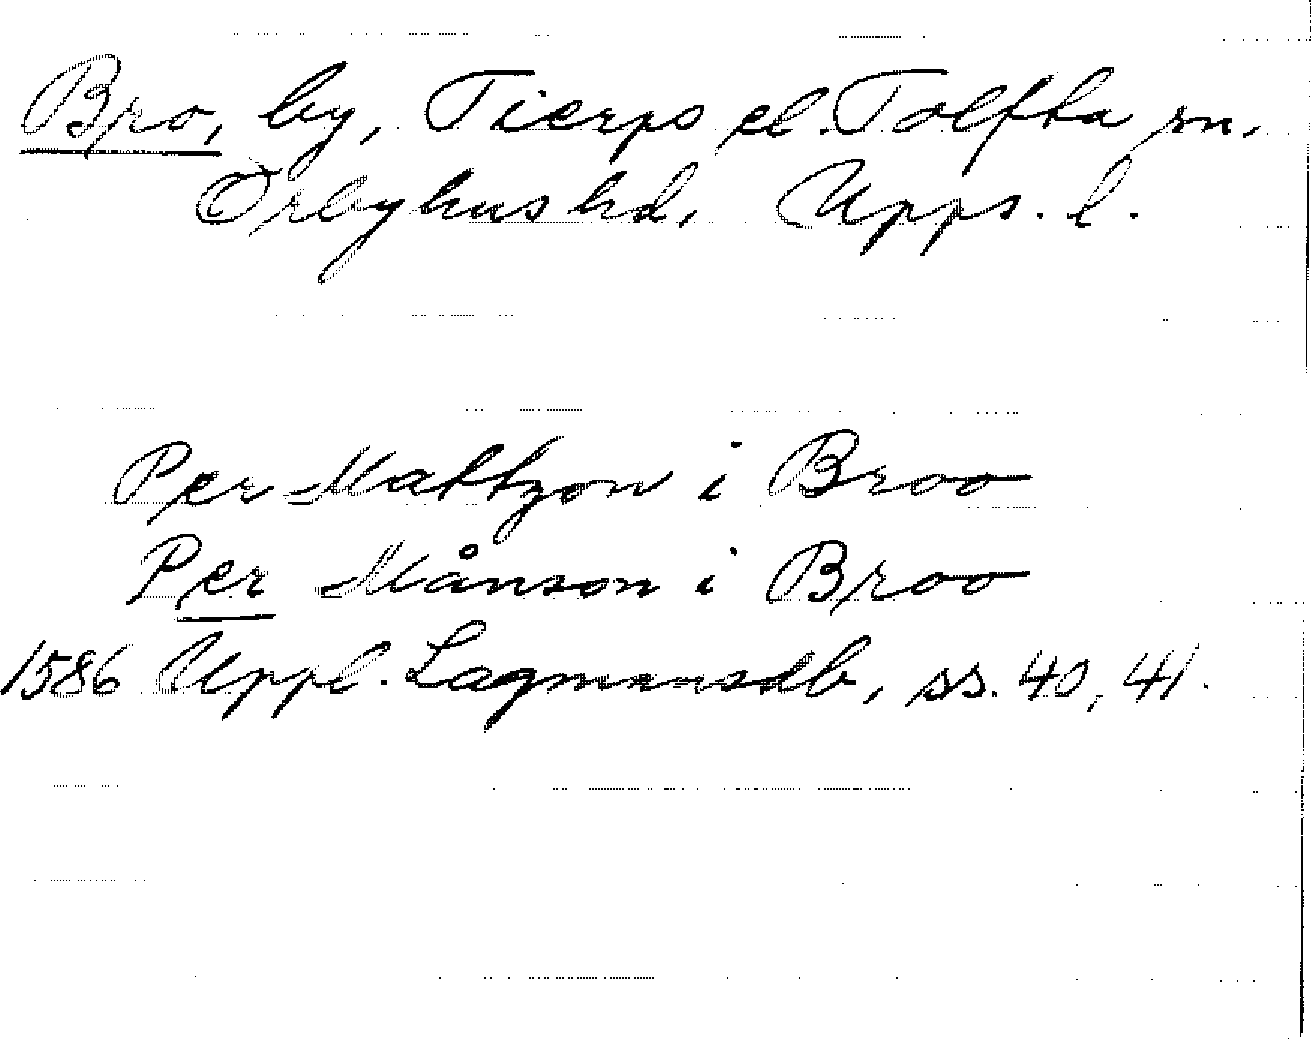 Bro, by, Tierps el. Tolfta sn.
Örbyhus hd, Upps. l.
Per Mattzon i Broo
Per Månson i Broo
1586 Uppl. Lagmansdb, ss. 40, 41.